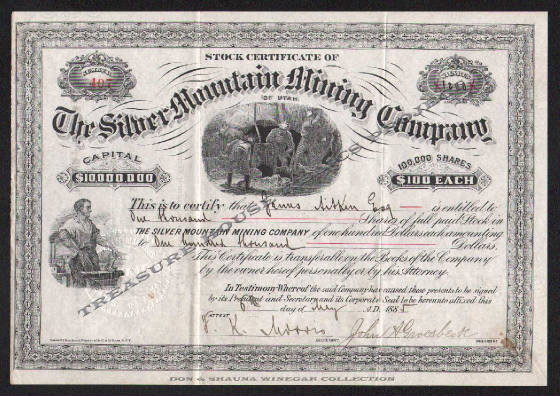 STOCK CERTIFICATE OF
497
The Silver Mountain Mining Company
OF UTAH.
CAPITAL
$10,000,000
100,000 SHARES
$100 EACH
This is to certify that James Aitken Esq is entitled to
One thousand Shares of full paid Stock in
THE SILVER MOUNTAIN MINING COMPANY of one hundred Dollars each amounting
to One hundred thousand Dollars.
This Certificate is transferable on the Books of the Company
by the owner hereof personally or by his Attorney.
In Testimony Whereof the said Company has caused these presents to be signed
by its President and Secretary and its Corporate Seal to be hereunto affixed this
day of May A.D. 188
ATTEST
K. Morris
John A Groesbeck
SECRETARY
PRESIDENT
DON & SHAUNA WINEGAR COLLECTION